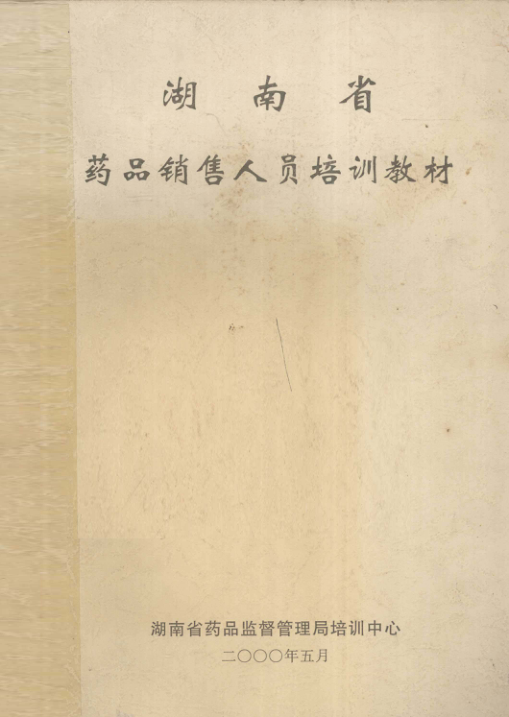 湖南省
药品销售人员培训教材
湖南省药品监督管理局培训中心
二〇〇〇年五月